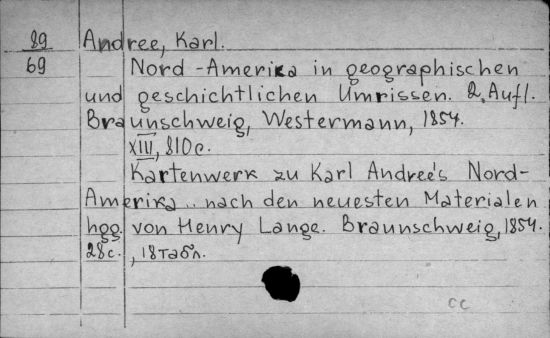 89 Andree, Karl.
69 Nord-Amerika in geographischen
und geschichtlichen Umrissen. 2. Aufl.
Braunschweig, Westermann, 1854.
XIII, 810 с.
Kartenwerk zu Karl Andree's Nord-
Amerika .. nach den neuesten Materialen
hgg. von Henry Lange. Braunschweig, 1854.
28 с., 18 табл.
сс